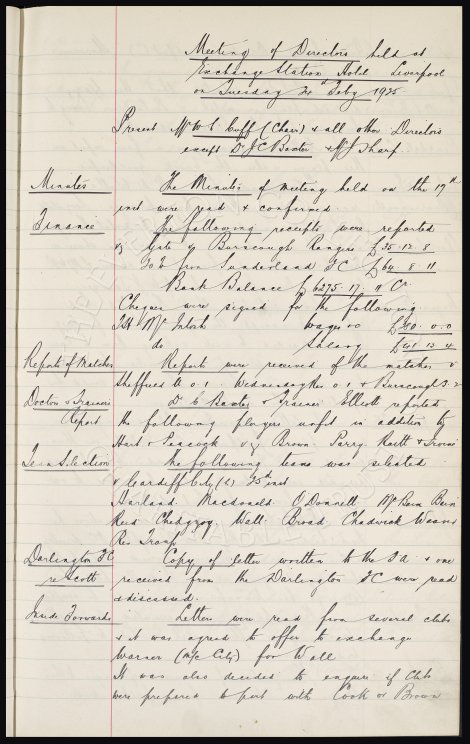 Meeting of Directors held at
Exchange Station Hotel Liverpool
on Tuesday 24th Feby 1925
Present Mr W C Cuff (Chair) & all other Directors
except Dr J C Baxter & Mr J Sharp.
Minutes The Minutes of meeting held on the 17th
inst were read & confirmed
Finance The following receipts were reported
Gate v Burscough Rangers £35 13 8
from Sunderland FC £64 8 11
Bank Balance £6275 17 11 Cr.
Cheques were signed for the following
McIntosh Wages 0 0
do Salary £41 13 4
Reports of Matches Reports were received of the matches v
Sheffield U 0-1 Wednesday Res 0-1 & Burscough 3-2
Doctors & Trainers Dr C Baxter & Trainer Elliott reported
Report the following players unfit in addition to
Hart & Peacock Brown. Parry. Raitt & Irvine
Team Selection The following team was selected
v Cardiff City (L) inst
Harland. Macdonald. O'Donnell. McBain Bain
Reid Chedgzoy. Wall. Broad. Chadwick Weaver
Res Troup
Darlington FC Copy of letter written to the FA & one
re Scott received from the Darlington FC were read
& discussed.
Inside Forwards Letters were read from several clubs
& it was agreed to offer to exchange
Warner (M/c City) for Wall
It was also decided to enquire if Clubs
were prepared to part with Cook or Brown